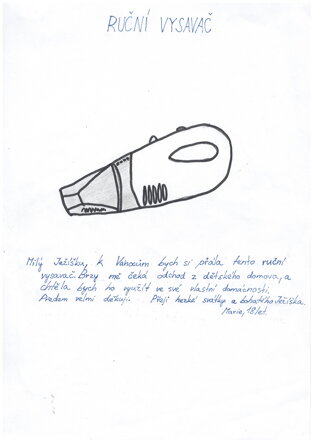 RUČNÍ VYSAVAČ
Milý Ježíšku, k Vánocům bych si přála tento ruční
vysavač. Brzy mě čeká odchod z dětského domova, a
chtěla bych ho využít ve své vlastní domácnosti.
Předem velmi děkuji. Přeji hezké svátky a bohatého Ježíška.
Marie, 18 let.